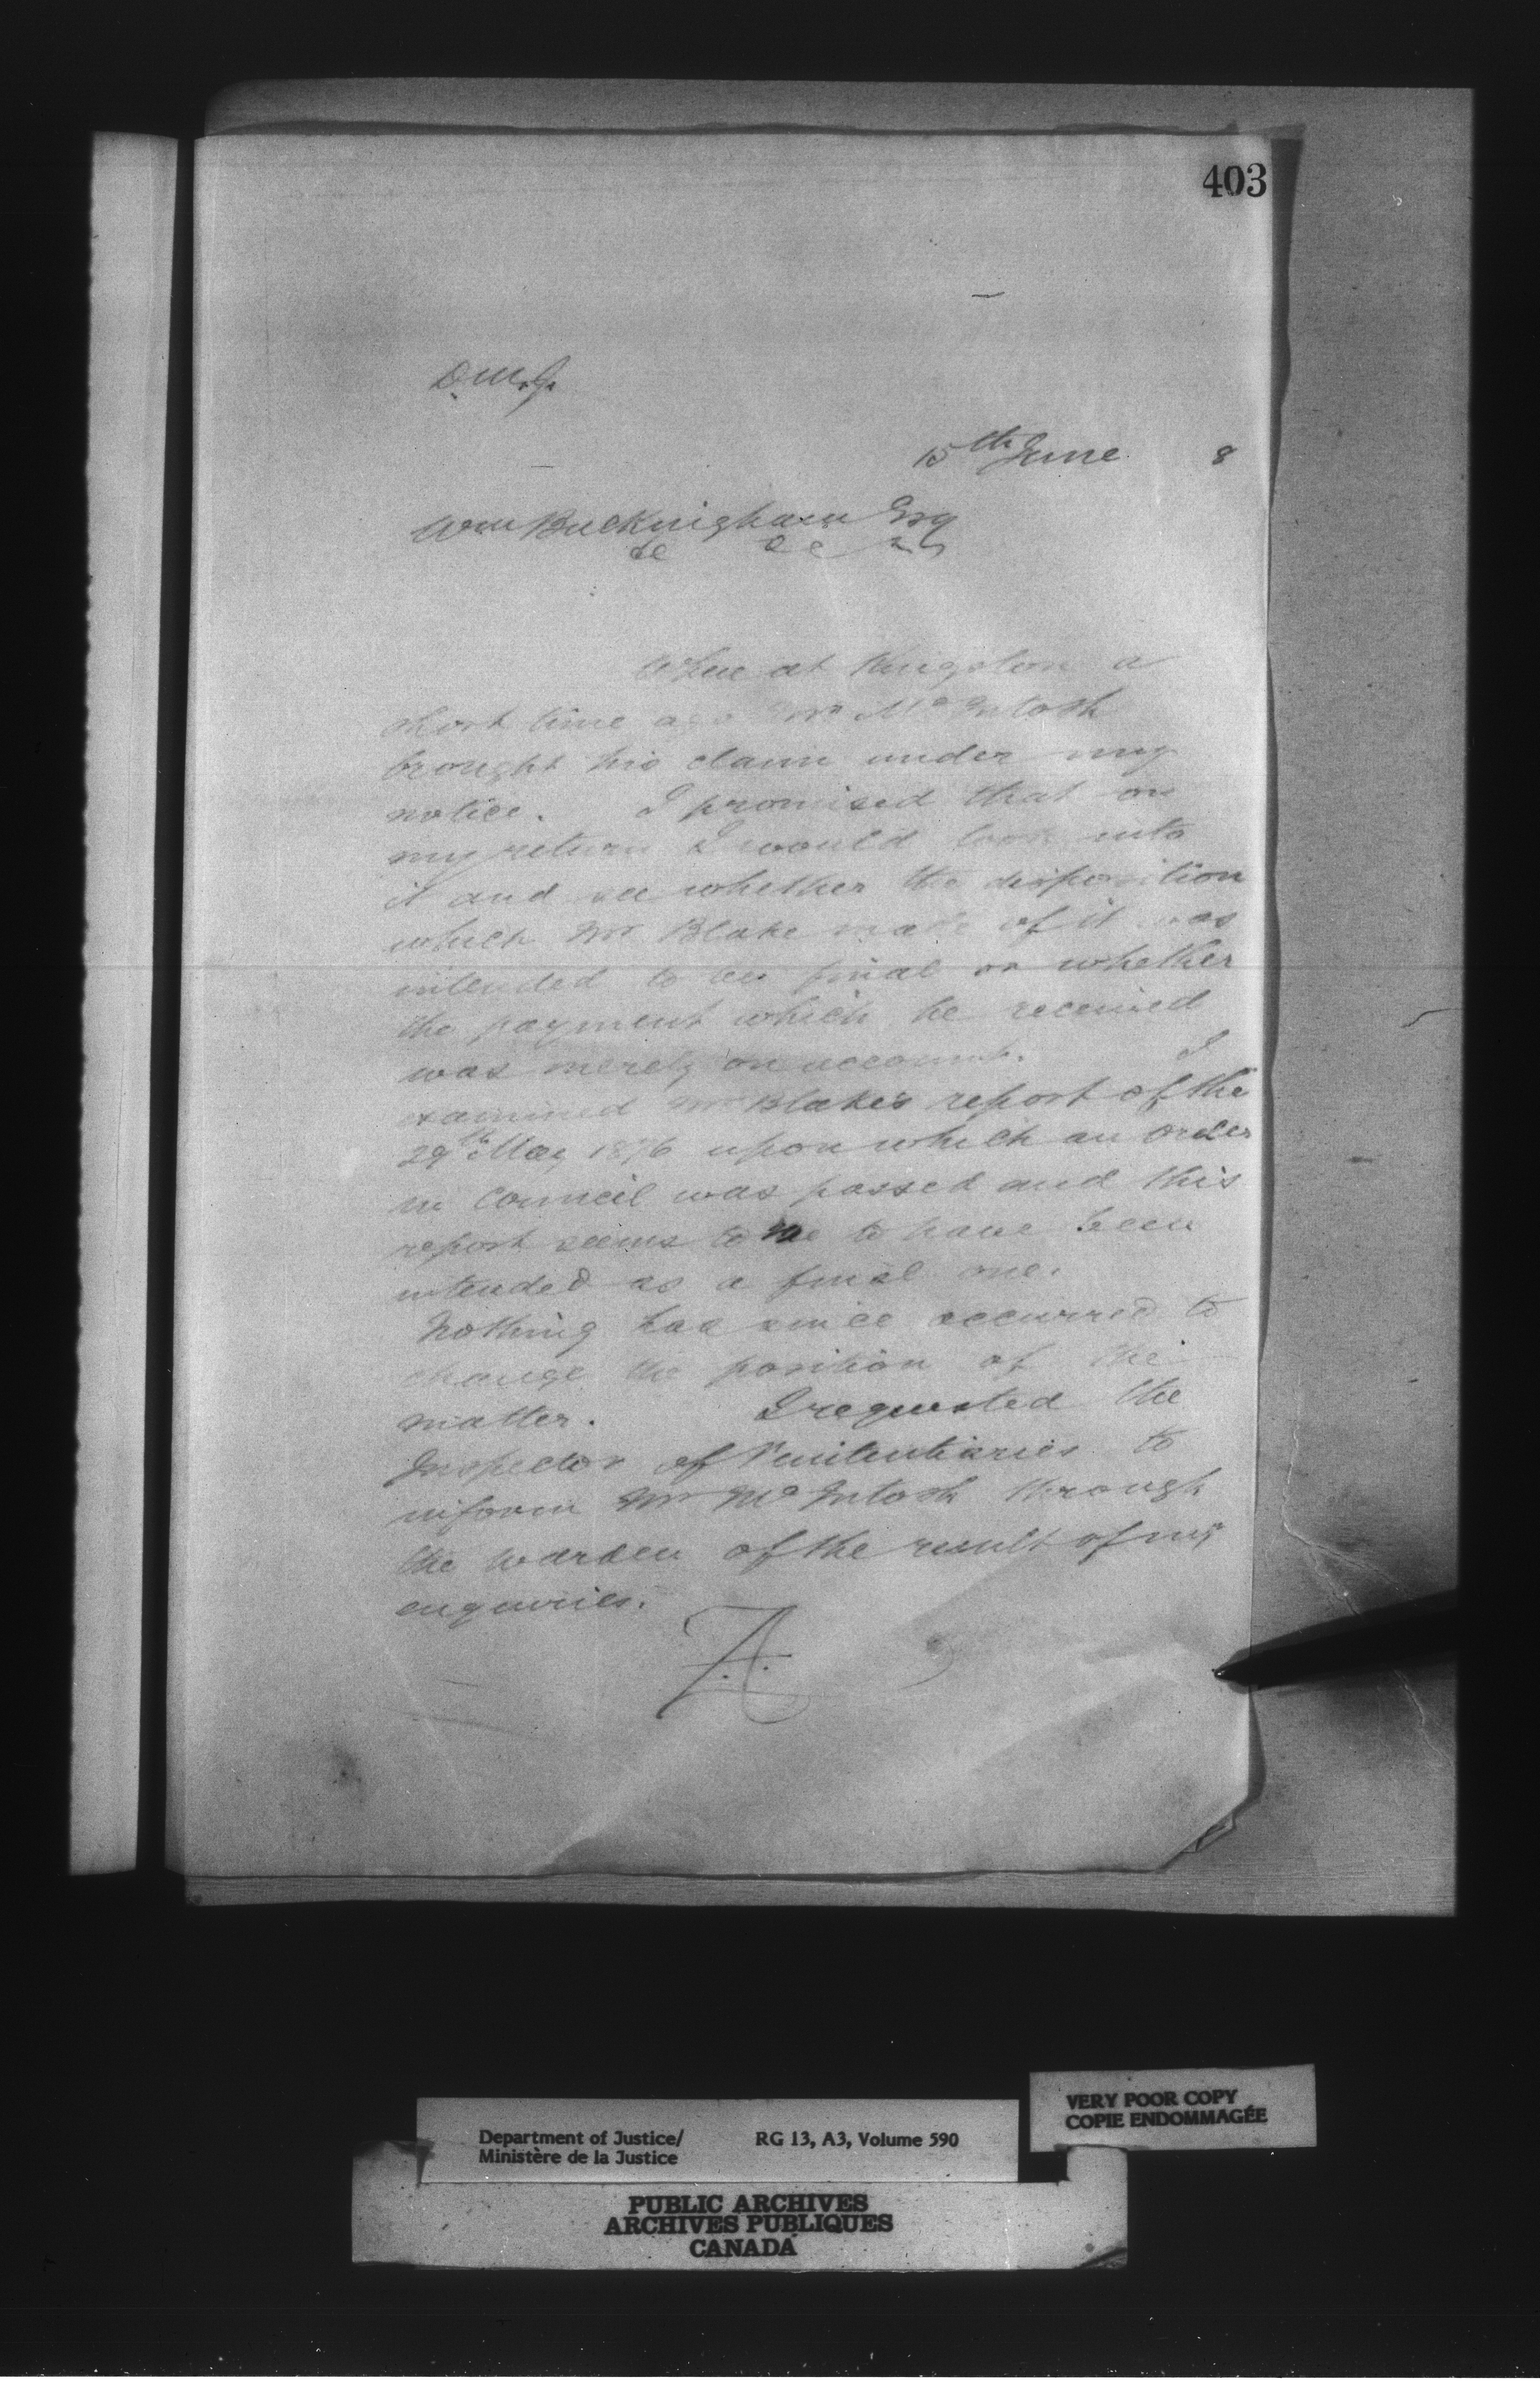 403
D.M.J.
15th June 8
Wm Buckingham Esq
&c &c &c
When at Kingston a
short time ago Mr McIntosh
brought his claim under my
notice. I promised that on
my return I would look into
it and see whether the disposition
which Mr Blake made of it was
intended to be final or whether
the payment which he received
was merely on account. I
examined Mr Blake's report of the
29th May 1876 upon which an order
in Council was passed and this
report seems to me to have been
intended as a final one.
Nothing has since occurred to
change the position of the
matter. I requested the
Inspector of Penitentiaries to
inform Mr McIntosh through
the Warden of the result of my
enquiries.
VERY POOR COPY
COPIE ENDOMMAGÉE
Department of Justice/ RG 13, A3, Volume 590
Ministère de la Justice
PUBLIC ARCHIVES
ARCHIVES PUBLIQUES
CANADA